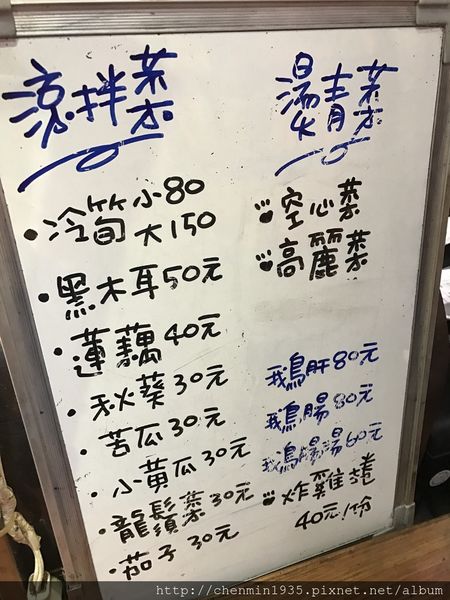 涼拌菜
•冷筍小80
大150
•黑木耳50元
•蓮藕40元
•秋葵30元
•苦瓜30元
•小黃瓜30元
•龍鬚菜30元
•茄子30元
燙青菜
空心菜
高麗菜
鵝肝80元
鵝腸80元
鵝腸湯60元
炸雞捲
40元/份
http://chenmin1935.pixnet.net/album